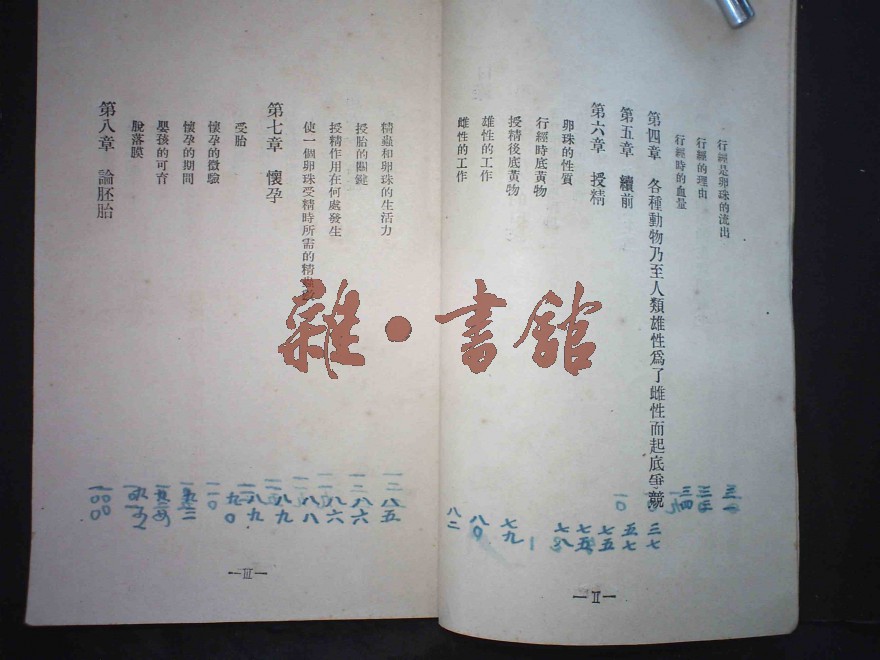 行經是卵珠的流出
行經的理由
行經時的血量
第四章 各種動物乃至人類雄性爲了雌性而起底爭競
第五章 續前
第六章 授精
卵珠的性質
行經時底黃物
授精後底黃物
雄性的工作
雌性的工作
三七
五七
七五
七五
七八
七九
八〇
八二
—II—
精蟲和卵珠的生活力
授胎的關鍵
授精作用在何處發生
使一個卵珠受精時所需的精蟲
第七章 懷孕
受胎
懷孕的徵驗
懷孕的期間
嬰孩的可育
脫落膜
第八章 論胚胎
八五
八六
八六
八八
八九
八九
九〇
—III—
雜·書館